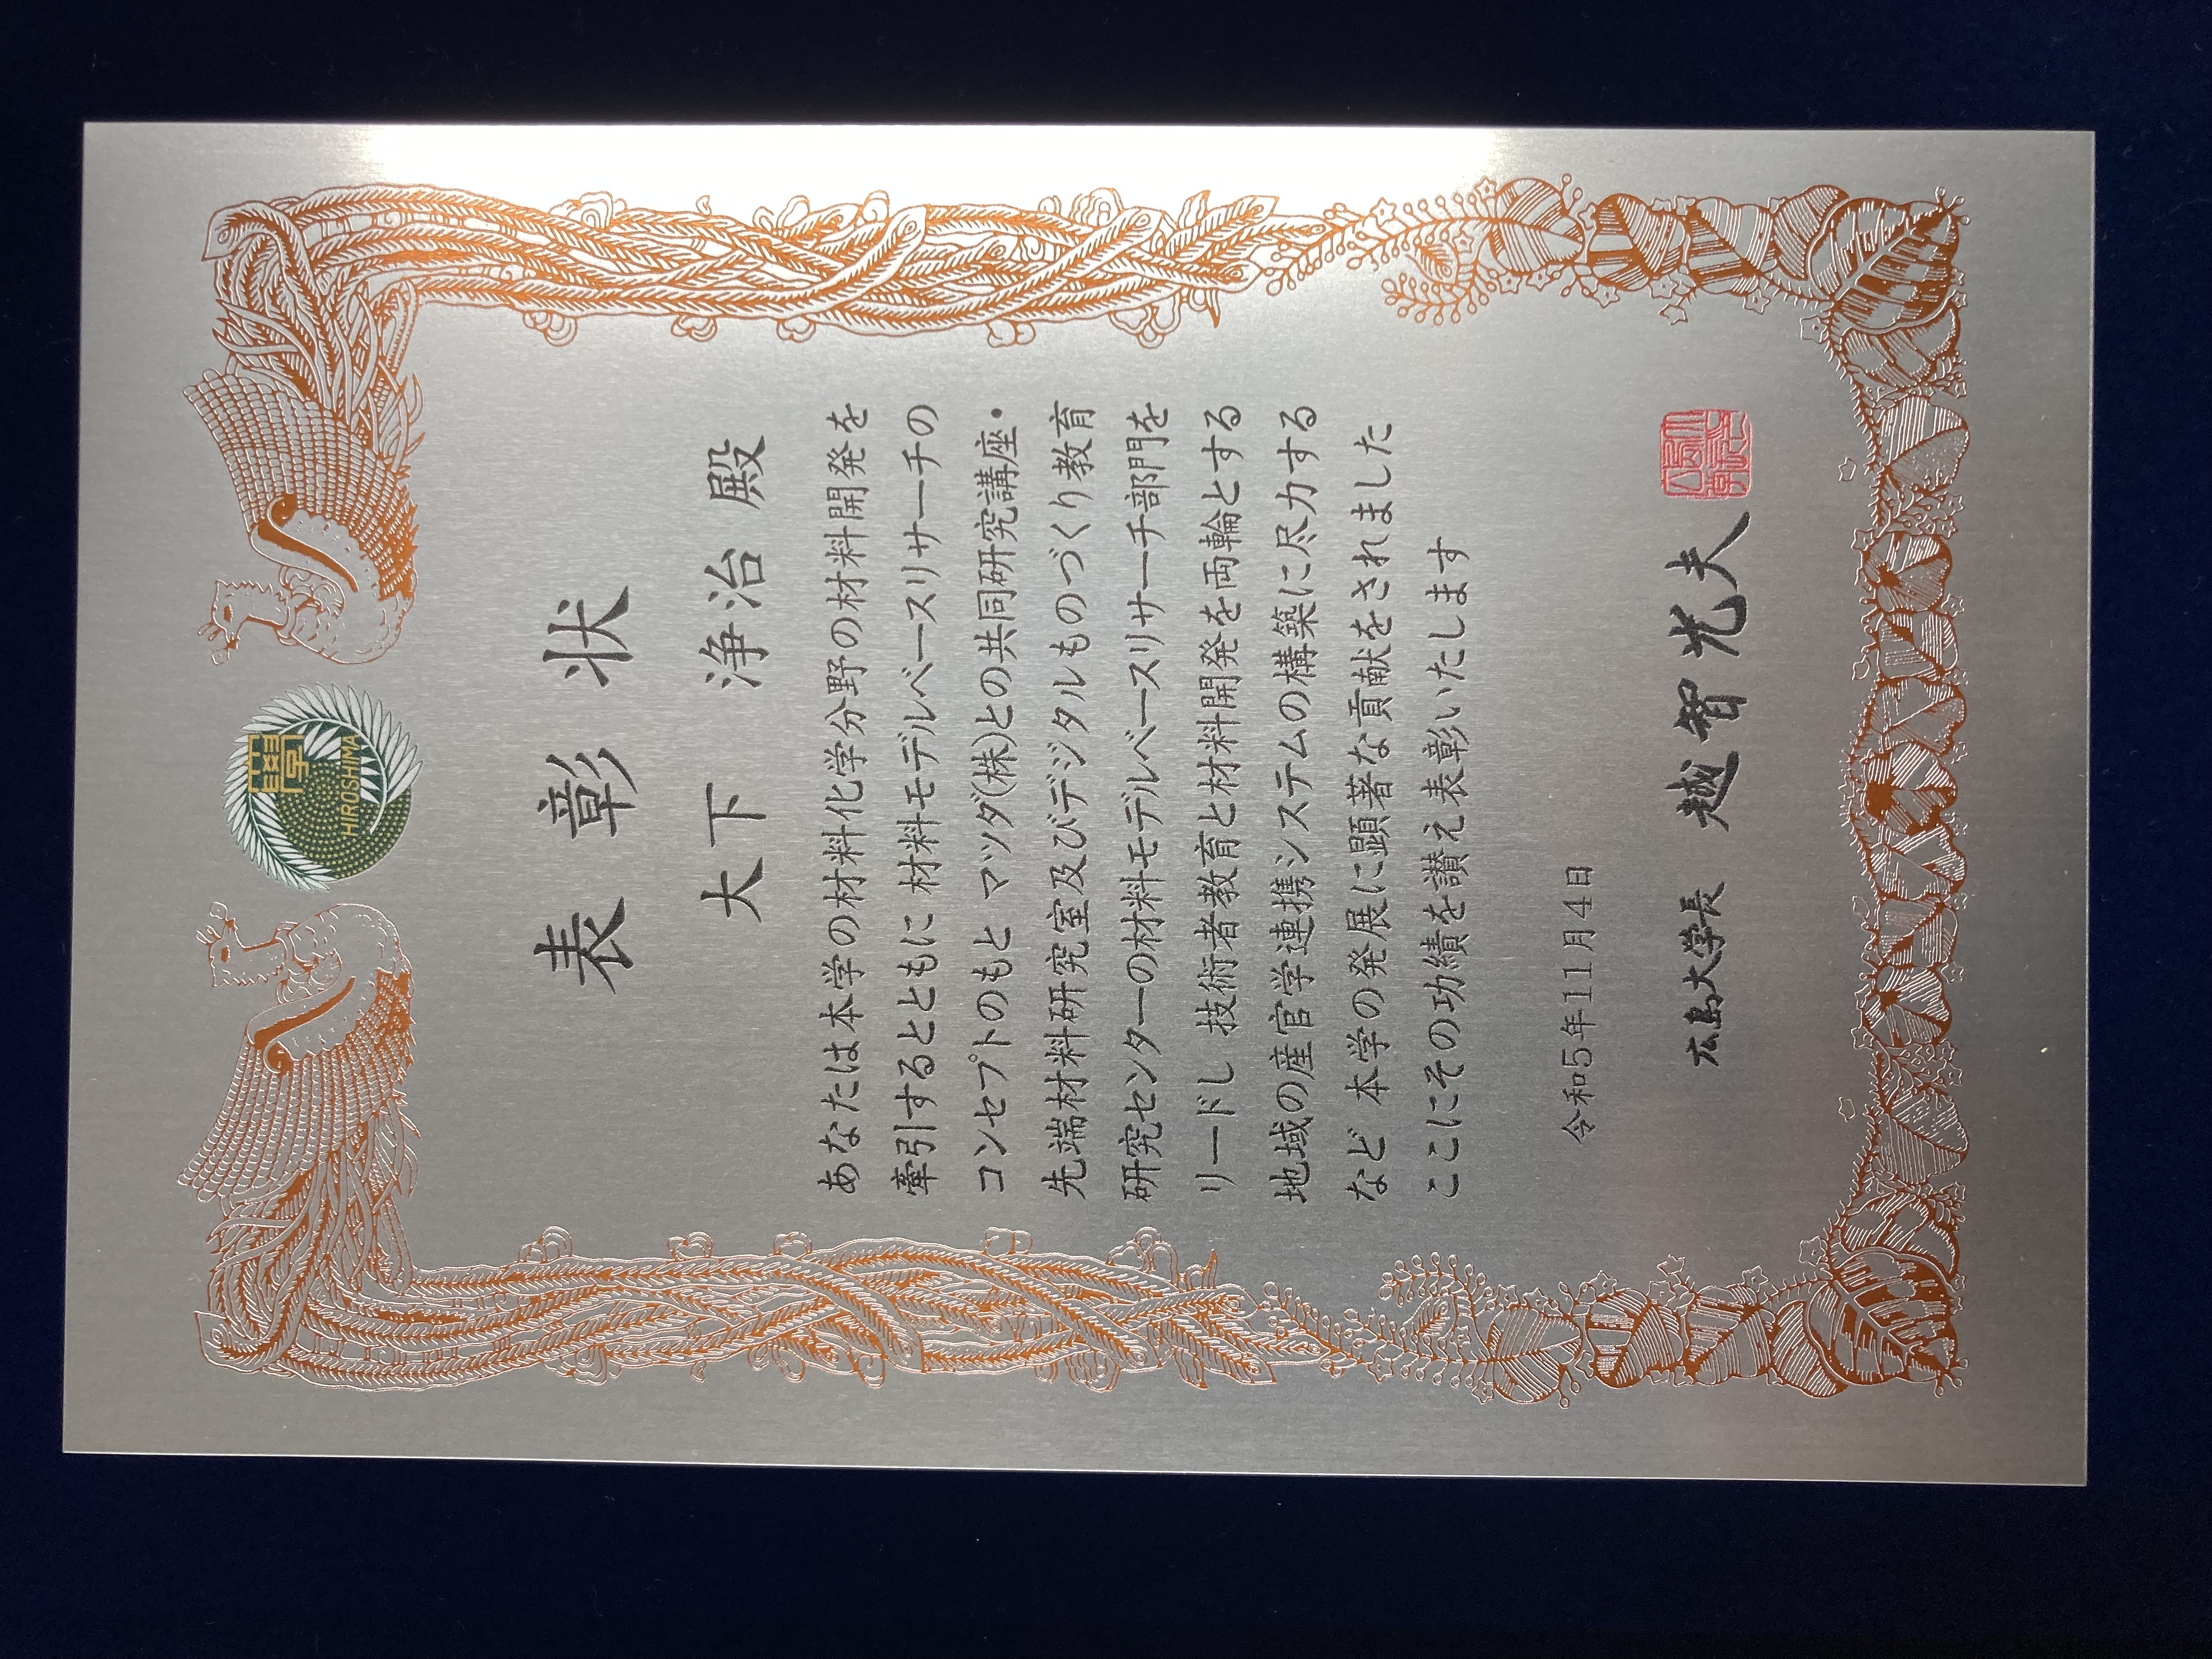 學
HIROSHIMA
表彰状
大下 浄治 殿
あなたは本学の材料化学分野の材料開発を
牽引するとともに 材料モデルベースリサーチの
コンセプトのもと マツダ(株)との共同研究講座・
先端材料研究室及びデジタルものづくり教育
研究センターの材料モデルベースリサーチ部門を
リードし 技術者教育と材料開発を両輪とする
地域の産官学連携システムの構築に尽力する
など 本学の発展に顕著な貢献をされました
ここにその功績を讃え表彰いたします
令和5年11月4日
広島大学長 越智光夫